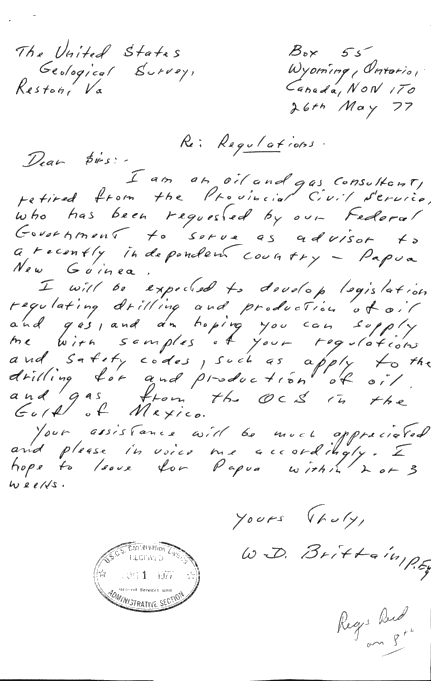 The United States
Geological Survey,
Reston, Va
Box 55
Wyoming, Ontario,
Canada, NON 1TO
26th May 77
Re: Regulations.
Dear Sirs:-
I am an oil and gas consultant,
retired from the Provincial Civil Service,
who has been requested by our Federal
Government to serve as advisor to
a recently independent country - Papua
New Guinea.
I will be expected to develop legislation
regulating drilling and production of oil
and gas, and am hoping you can supply
me with samples of your regulations
and safety codes, such as apply to the
drilling for and production of oil
and gas from the OCS in the
Gulf of Mexico.
Your assistance will be much appreciated
and please in voice me accordingly. I
hope to leave for Papua within 2 or 3
weeks.
Yours Truly,
W.D. Brittain, P.Eng
U.S.G.S. Conservation Division
RECEIVED
1 1977
ADMINISTRATIVE SECTION
Regs
on